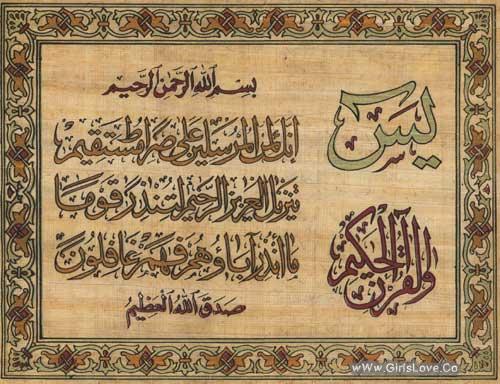 بسم الله الرحمن الرحيم
يس
والقرآن الحكيم
إنك لمن المرسلين على صراط مستقيم
تنزيل العزيز الرحيم لتنذر قوما
ما أنذر آباؤهم فهم غافلون
صدق الله العظيم
www.GirlsLove.Co